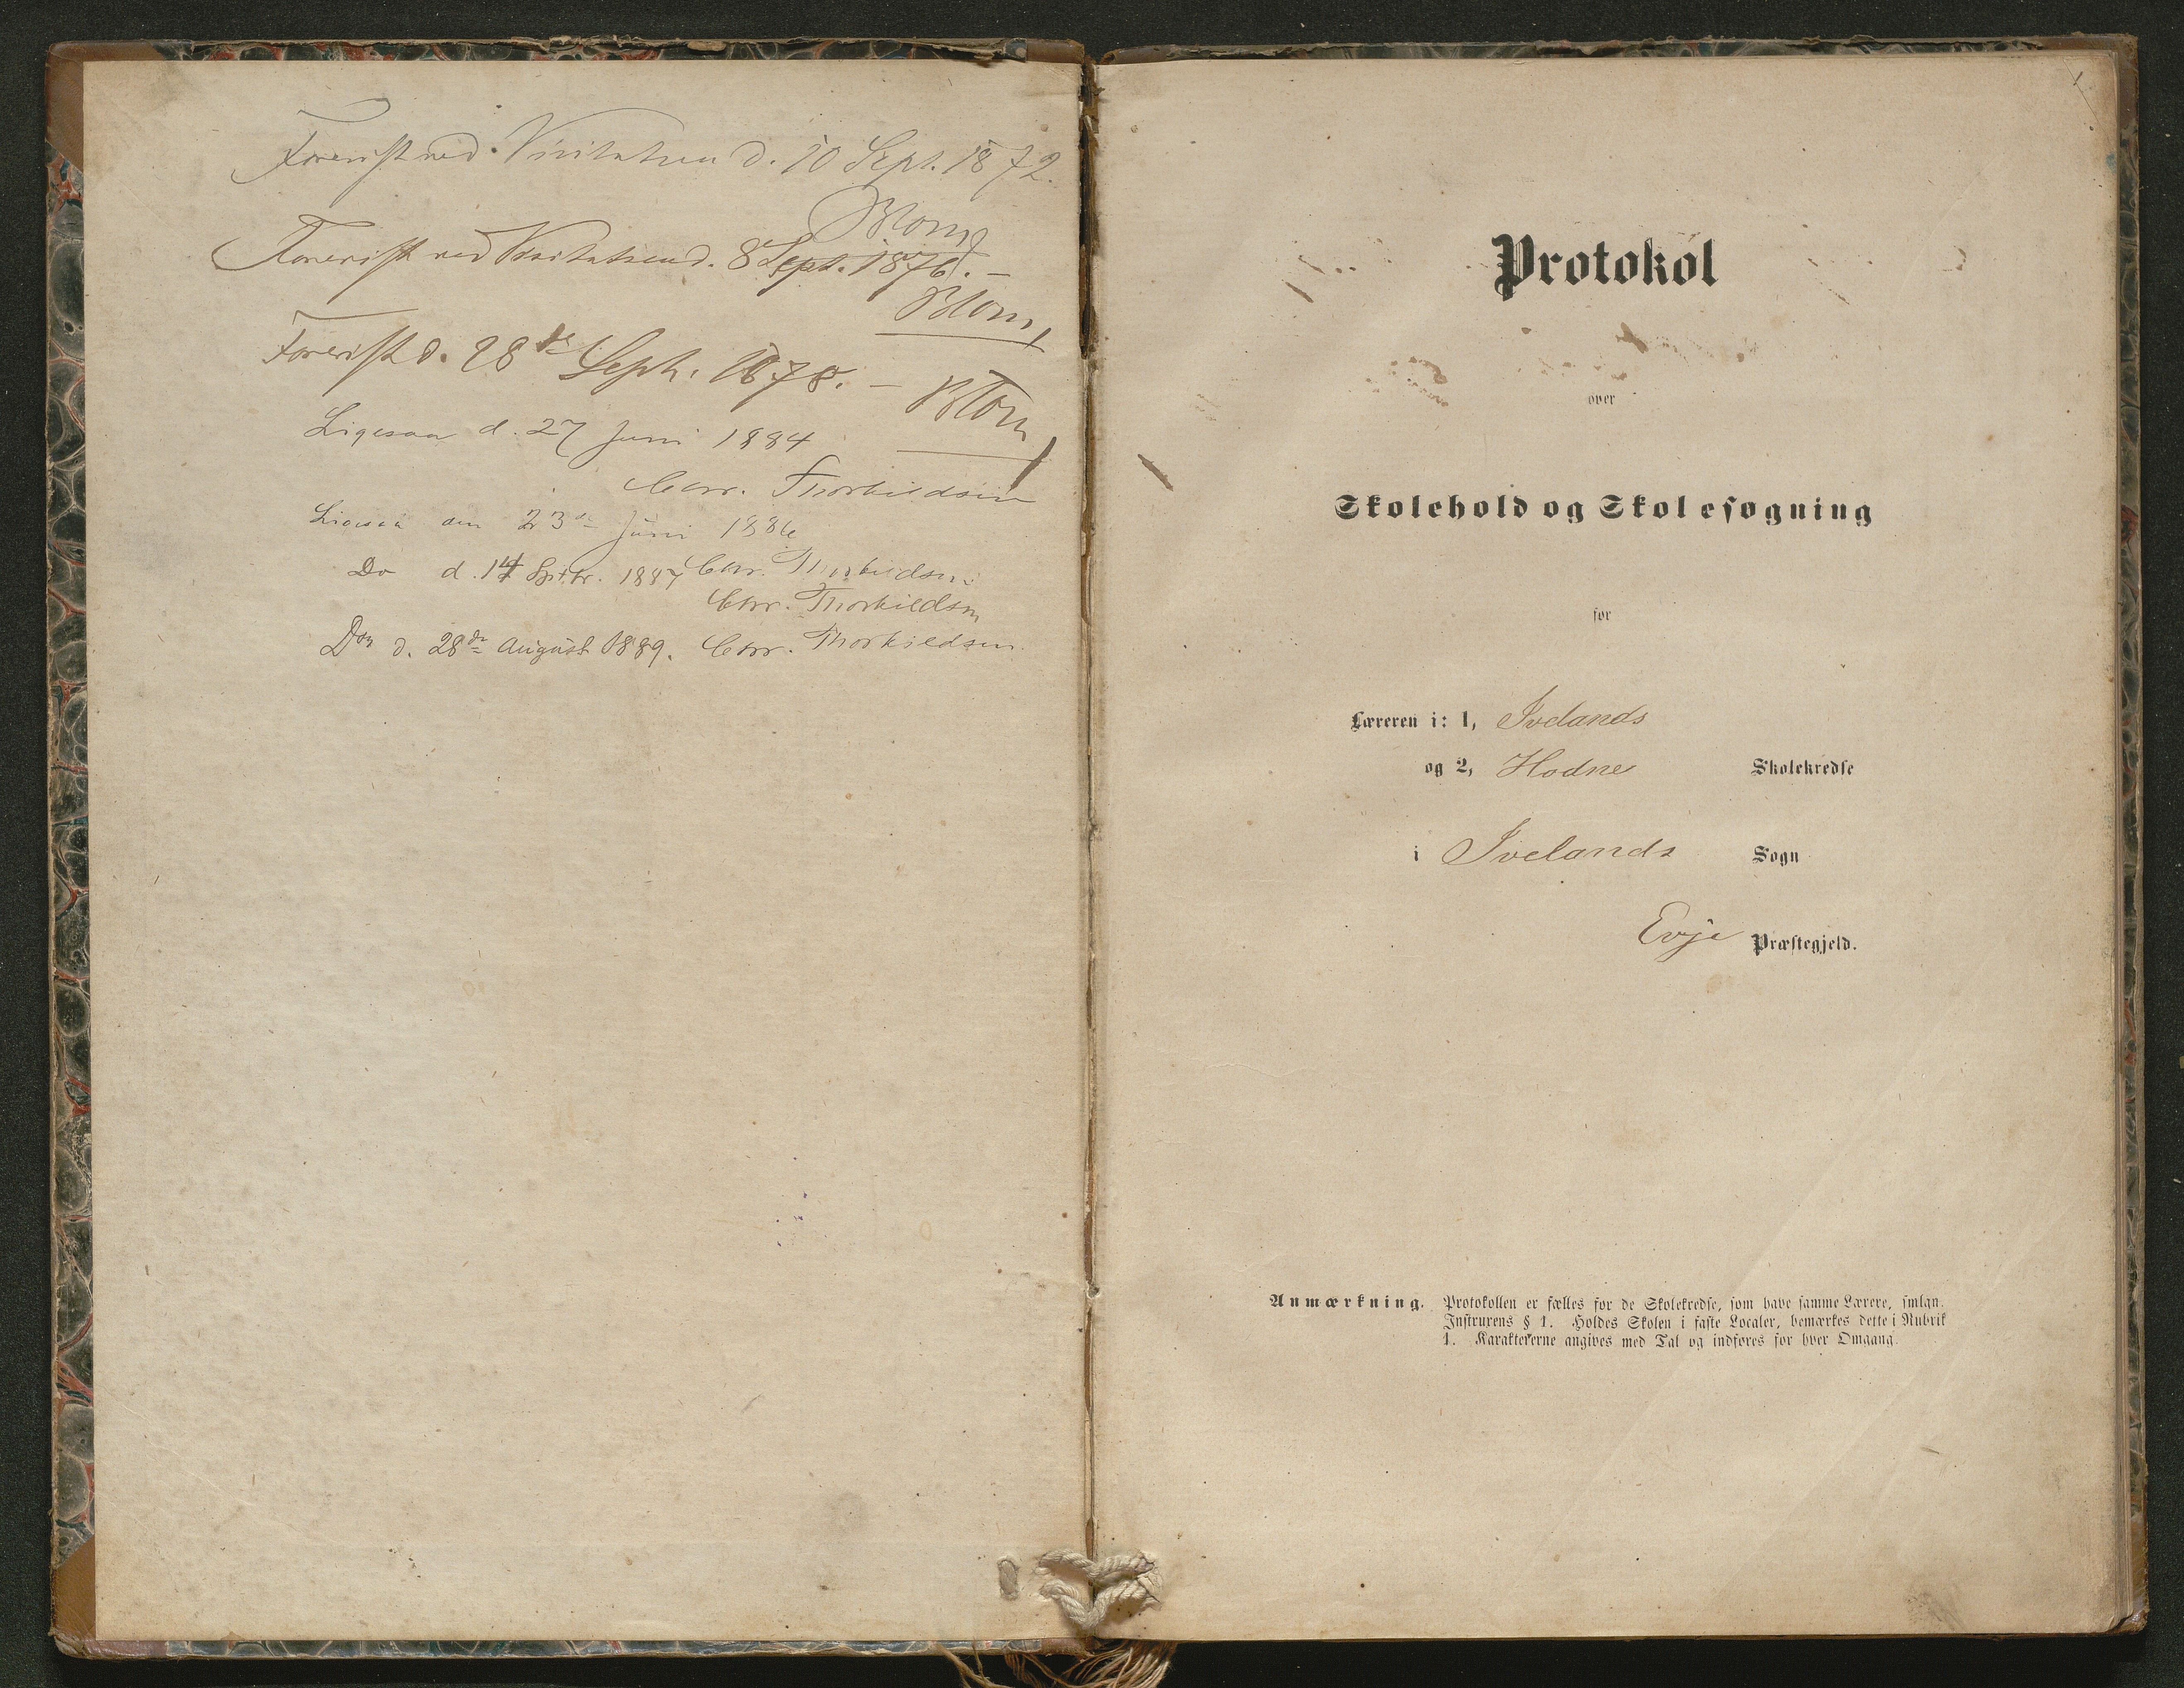 Forevist ved Visitatsen d. 10 Sept. 1872.
Blom
Forevist ved Visitatsen d. 8 Sept. 1876. –
Blom
Forevist d. 28de Septr. 1878. – Blom
Ligesaa d. 27 Juni 1884
Chr. Thorkildsen
Ligesaa den 23de Juni 1886
Chr. Thorkildsen
Do d. 14 Septbr. 1887
Chr. Thorkildsen
Do d. 28de August 1889. Chr. Thorkildsen
1
Protokol
over
Skolehold og Skolesøgning
for
Læreren i: 1, Ivelands
og 2, Hodne Skolekredse
i Ivelands Sogn
Evje Præstegjeld.
Anmærkning. Protokollen er fælles for de Skolekredse, som have samme Lærere, smlgn.
Instruxens § 1. Holdes Skolen i faste Localer, bemærkes dette i Rubrik
1. Karaktererne angives med Tal og indføres for hver Omgang.